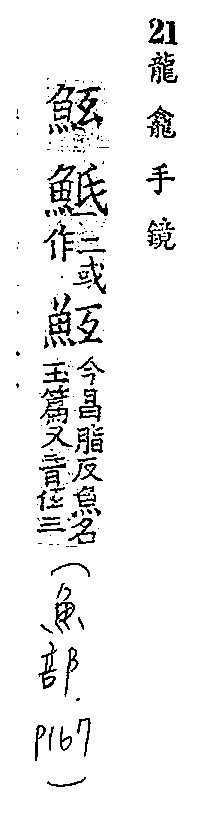 21龍龕手鏡
二或作
今昌脂反魚名
玉篇又音仾三
(魚部.P167)